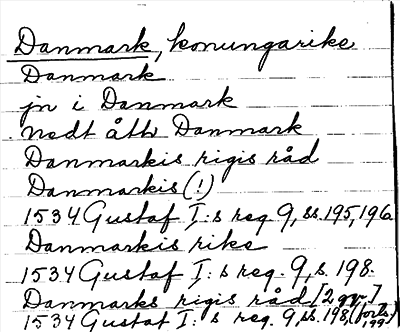 Danmark, konungarike
Danmark
jn i Danmark
nedt åth Danmark
Danmarkis rigis råd
Danmarkis (!)
1534 Gustaf I:s reg. 9, ss. 195, 196
Danmarkis rike
1534 Gustaf I:s reg. 9, s. 198.
Danmarks rigis råd [2 ggr.]
1534 Gustaf I:s reg. 9, ss. 198, (forts.) 199